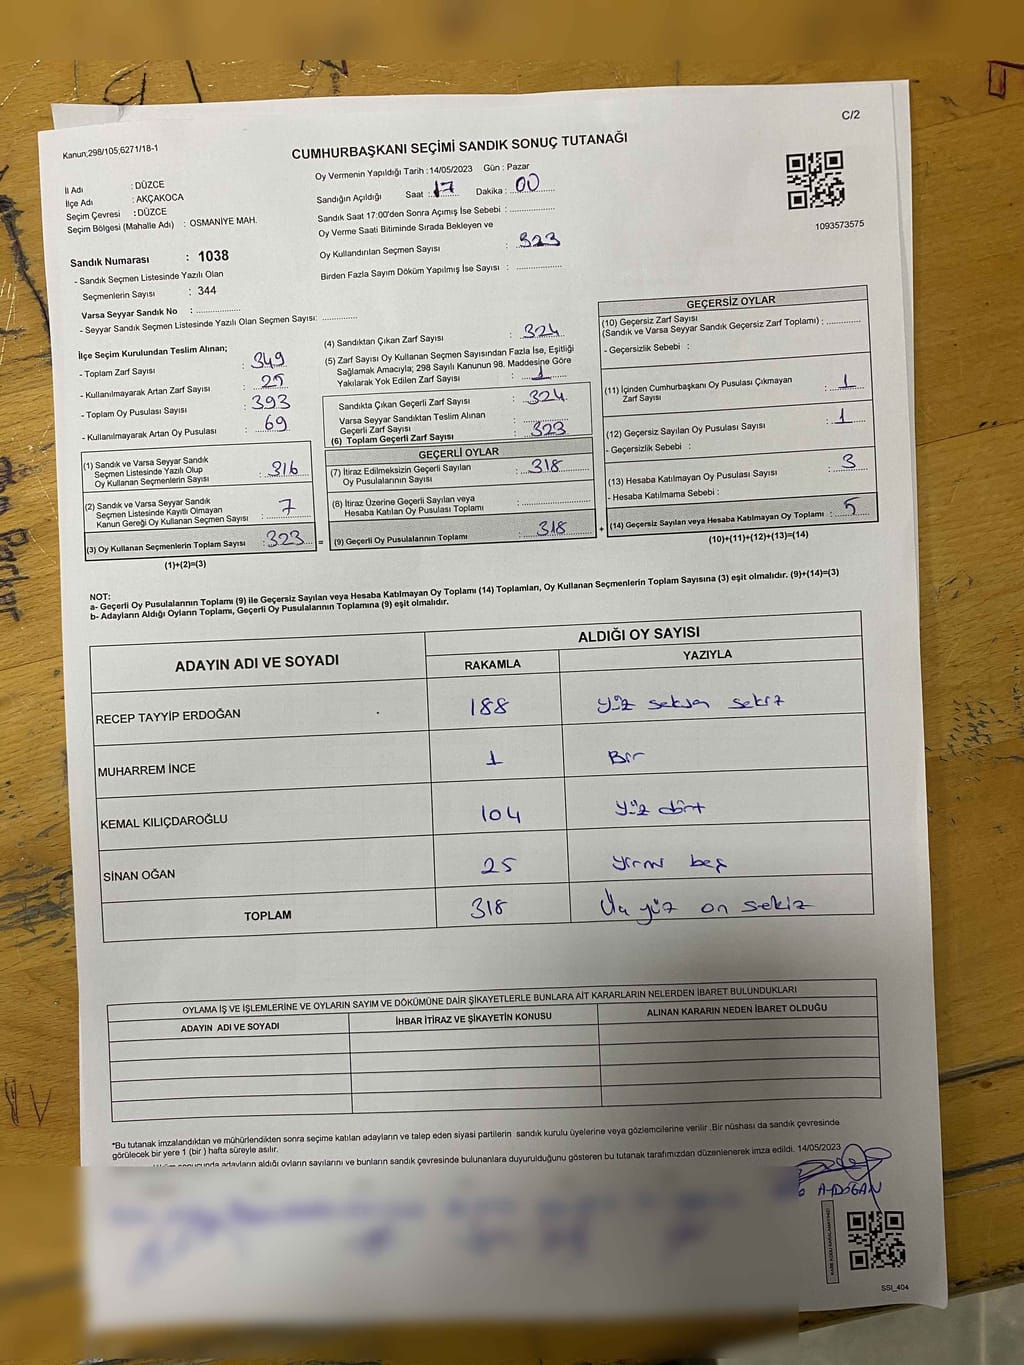 C/2
Kanun;298/105;6271/18-1
CUMHURBAŞKANI SEÇİMİ SANDIK SONUÇ TUTANAĞI
Oy Vermenin Yapıldığı Tarih :14/05/2023 Gün : Pazar
İl Adı : DÜZCE
İlçe Adı : AKÇAKOCA
Seçim Çevresi : DÜZCE
Seçim Bölgesi (Mahalle Adı) : OSMANİYE MAH.
Sandığın Açıldığı Saat : 17 Dakika : 00
Sandık Saat 17:00'den Sonra Açımış İse Sebebi :
Oy Verme Saati Bitiminde Sırada Bekleyen ve
Oy Kullandırılan Seçmen Sayısı : 323
Birden Fazla Sayım Döküm Yapılmış İse Sayısı :
1093573575
Sandık Numarası : 1038
- Sandık Seçmen Listesinde Yazılı Olan
Seçmenlerin Sayısı : 344
Varsa Seyyar Sandık No :
- Seyyar Sandık Seçmen Listesinde Yazılı Olan Seçmen Sayısı:
İlçe Seçim Kurulundan Teslim Alınan;
- Toplam Zarf Sayısı : 349
- Kullanılmayarak Artan Zarf Sayısı : 25
- Toplam Oy Pusulası Sayısı : 393
- Kullanılmayarak Artan Oy Pusulası : 69
(1) Sandık ve Varsa Seyyar Sandık
Seçmen Listesinde Yazılı Olup
Oy Kullanan Seçmenlerin Sayısı : 316
(2) Sandık ve Varsa Seyyar Sandık
Seçmen Listesinde Kayıtlı Olmayan
Kanun Gereği Oy Kullanan Seçmen Sayısı : 7
(3) Oy Kullanan Seçmenlerin Toplam Sayısı : 323 =
(1)+(2)=(3)
(4) Sandıktan Çıkan Zarf Sayısı : 324
(5) Zarf Sayısı Oy Kullanan Seçmen Sayısından Fazla İse, Eşitliği
Sağlamak Amacıyla; 298 Sayılı Kanunun 98. Maddesine Göre
Yakılarak Yok Edilen Zarf Sayısı : 1
Sandıkta Çıkan Geçerli Zarf Sayısı : 324
Varsa Seyyar Sandıktan Teslim Alınan
Geçerli Zarf Sayısı :
(6) Toplam Geçerli Zarf Sayısı : 323
GEÇERLİ OYLAR
(7) İtiraz Edilmeksizin Geçerli Sayılan
Oy Pusulasının Sayısı : 318
(8) İtiraz Üzerine Geçerli Sayılan veya
Hesaba Katılan Oy Pusulası Toplamı :
(9) Geçerli Oy Pusulalarının Toplamı : 318 +
GEÇERSİZ OYLAR
(10) Geçersiz Zarf Sayısı
(Sandık ve Varsa Seyyar Sandık Geçersiz Zarf Toplamı) :
- Geçersizlik Sebebi :
(11) İçinden Cumhurbaşkanı Oy Pusulası Çıkmayan
Zarf Sayısı : 1
(12) Geçersiz Sayılan Oy Pusulası Sayısı : 1
- Geçersizlik Sebebi :
(13) Hesaba Katılmayan Oy Pusulası Sayısı : 3
- Hesaba Katılmama Sebebi :
(14) Geçersiz Sayılan veya Hesaba Katılmayan Oy Toplamı : 5
(10)+(11)+(12)+(13)=(14)
NOT:
a- Geçerli Oy Pusulalarının Toplamı (9) ile Geçersiz Sayılan veya Hesaba Katılmayan Oy Toplamı (14) Toplamları, Oy Kullanan Seçmenlerin Toplam Sayısına (3) eşit olmalıdır. (9)+(14)=(3)
b- Adayların Aldığı Oyların Toplamı, Geçerli Oy Pusulalarının Toplamına (9) eşit olmalıdır.
ADAYIN ADI VE SOYADI ALDIĞI OY SAYISI
RAKAMLA YAZIYLA
RECEP TAYYİP ERDOĞAN 188 yüz seksen sekiz
MUHARREM İNCE 1 Bir
KEMAL KILIÇDAROĞLU 104 yüz dört
SİNAN OĞAN 25 yirmi beş
TOPLAM 318 Üç yüz on sekiz
OYLAMA İŞ VE İŞLEMLERİNE VE OYLARIN SAYIM VE DÖKÜMÜNE DAİR ŞİKAYETLERLE BUNLARA AİT KARARLARIN NELERDEN İBARET BULUNDUKLARI
ADAYIN ADI VE SOYADI İHBAR İTİRAZ VE ŞİKAYETİN KONUSU ALINAN KARARIN NEDEN İBARET OLDUĞU
*Bu tutanak imzalandıktan ve mühürlendikten sonra seçime katılan adayların ve talep eden siyasi partilerin sandık kurulu üyelerine veya gözlemcilerine verilir .Bir nüshası da sandık çevresinde
görülecek bir yere 1 (bir ) hafta süreyle asılır.
adayların aldığı oyların sayılarını ve bunların sandık çevresinde bulunanlara duyurulduğunu gösteren bu tutanak tarafımızdan düzenlenerek imza edildi. 14/05/2023
SSI_404